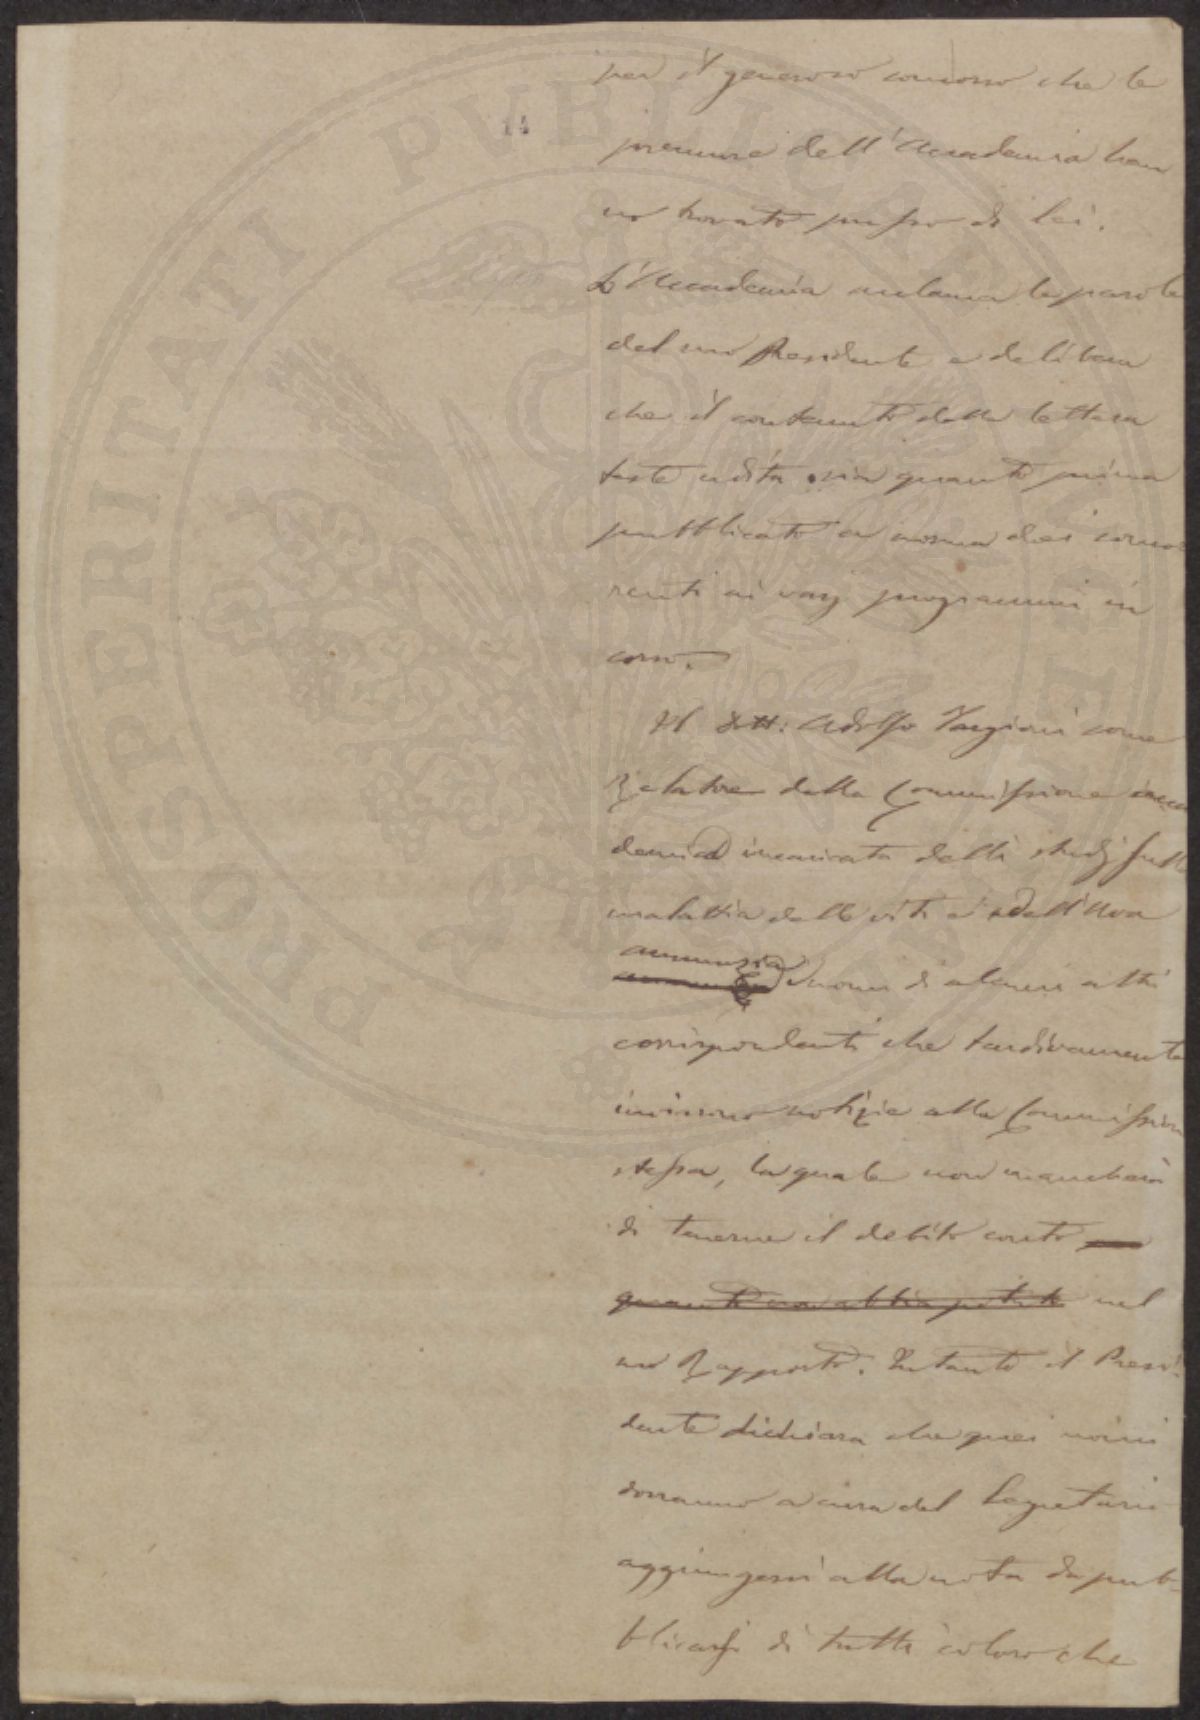 PROSPERITATI PVBLICAE AVGENDAE
14
per il generoso concorso che le
premure dell'Accademia han
no trovato presso di lei.
L'Accademia acclama le parole
del suo Presidente e delibera
che il contenuto della lettera
teste udita sia quanto prima
pubblicato a norma dei concor
renti ai varj programmi in
corso.
Il Dott: Adolfo Targioni come
Relatore della Commissione acca
demica incaricata delli studj sulla
malattia delle viti e dell'Uva
annunzia
i nomi di alcuni altri
corrispondenti che tardivamente
inviarono notizie alla Commissione
stessa, la quale non mancherà
di tenerne il debito conto
quanto non abbia potuto nel
suo Rapporto. Intanto il Presi
dente dichiara che quei nomi
dovranno a cura del Segretario
aggiungersi alla nota da pub-
blicarsi di tutti coloro che